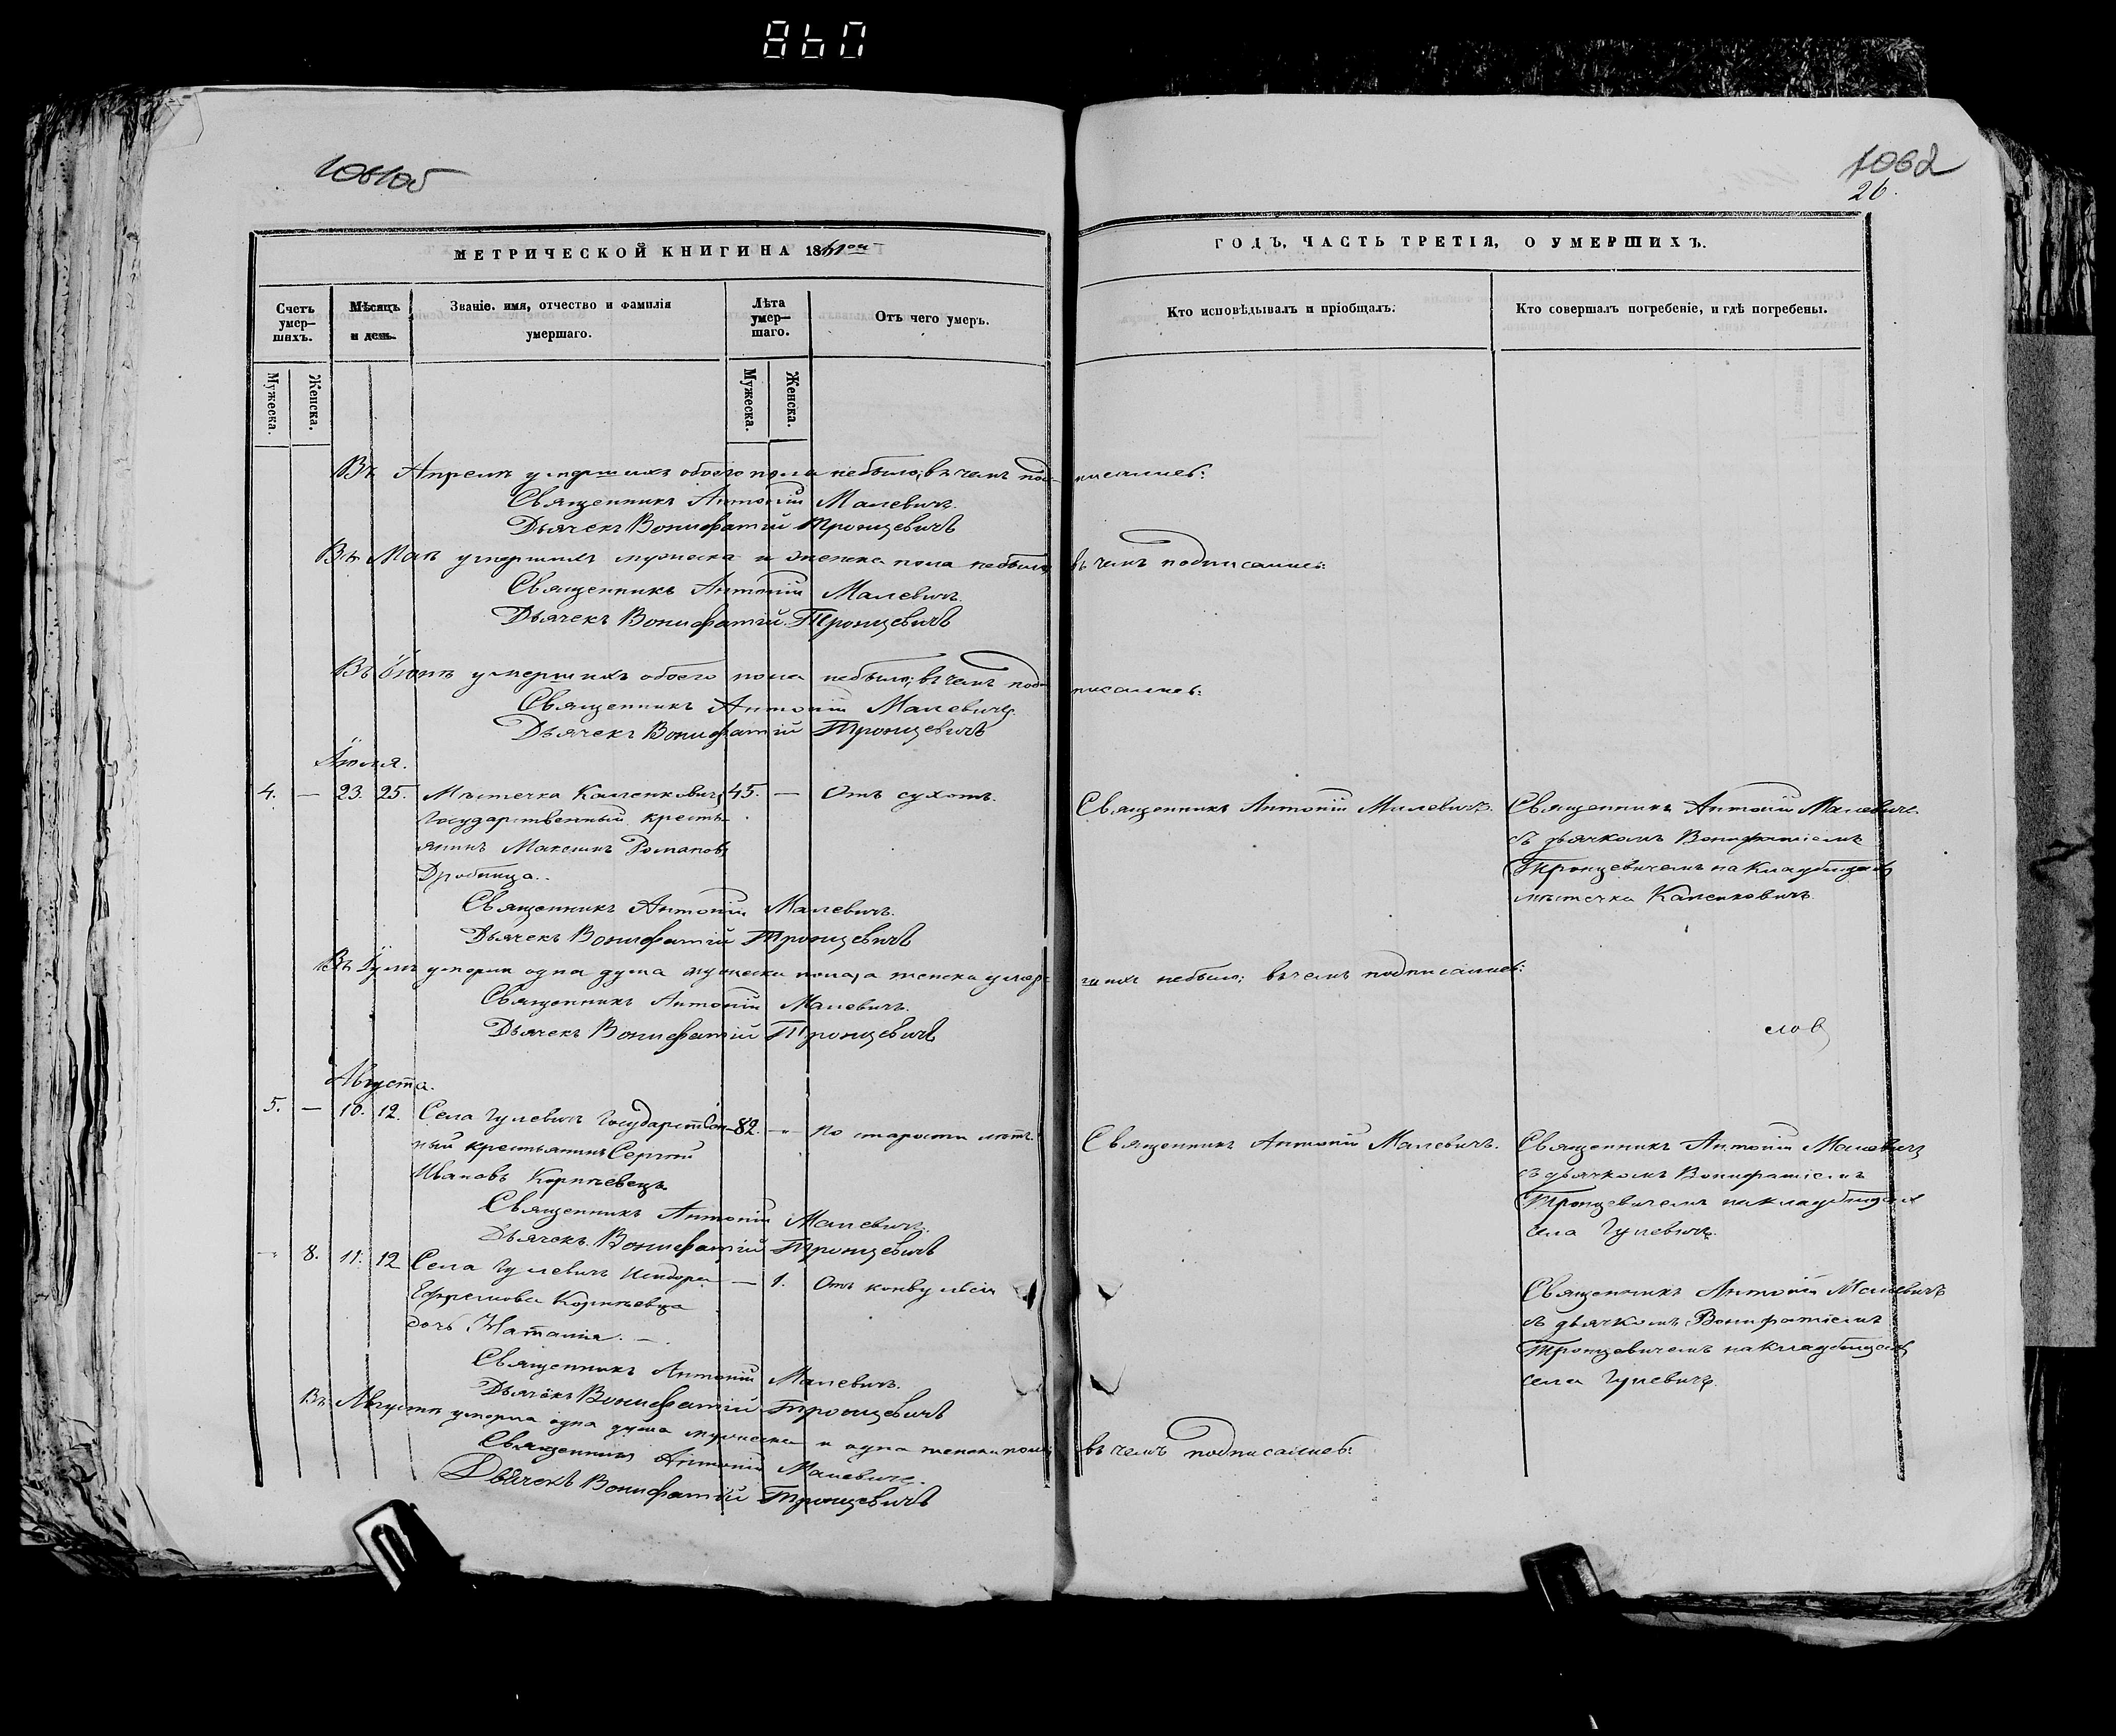 860
1062
26.
МЕТРИЧЕСКОЙ КНИГИ НА 1861ой
ГОДЪ, ЧАСТЬ ТРЕТІЯ, О УМЕРШИХЪ.
Счетъ умер—шихъ.
Мѣсяцъ и день.
Званіе. имя, отчество и фамилія умершаго.
Лѣта умер—шаго.
Отъ чего умеръ.
Кто исповѣдывалъ и пріобщалъ.
Кто совершалъ погребеніе, и гдѣ погребены.
Мужеска.
Женска.
Мужеска.
Женска.
Въ Апрелѣ умершихъ обоего пола небыло; въ чемъ подписались:
Священникъ Антоній Малевичъ.
Дьячекъ Вонифатій Тронцевичъ
Въ Маѣ умершихъ мужеска и женска пола небыло въ чемъ подписались:
Священникъ Антоній Малевичъ.
Дьячекъ Вонифатій Тронцевичъ
Въ Іюнѣ умершихъ обоего пола небыло; въ чемъ подписались:
Священникъ Антоній Малевичъ.
Дьячекъ Вонифатій Тронцевичъ
Іюля.
4. — 23. 25. Мѣстечка Каленковичъ 45. — Отъ сухотъ.
Государственный кресть-
янинъ Максимъ Романовъ
Дробница.
Священникъ Антоній Малевичъ.
Священникъ Антоній Малевичъ
съ дьячкомъ Вонифатіемъ
Тронцевичемъ на кладбищѣ
мѣстечка Каленковичъ
Священникъ Антоній Малевичъ.
Дьячекъ Вонифатій Тронцевичъ
Въ Іулѣ умерла одна душа мужеска пола, а женска умер-
шихъ небыло; въ чемъ подписались:
Священникъ Антоній Малевичъ.
Дьячекъ Вонифатій Тронцевичъ
Августа.
5. — 10. 12. Села Гулевичъ Государствен- 82. — По старости лѣтъ.
ный крестьянинъ Сергій
Ивановъ Корнѣевецъ
Священникъ Антоній Малевичъ.
Священникъ Антоній Малевичъ
съ дьячкомъ Вонифатіемъ
Тронцевичемъ на кладбищѣ
села Гулевичъ.
Священникъ Антоній Малевичъ.
Дьячекъ Вонифатій Тронцевичъ
— 8. 11. 12 Села Гулевичъ Исидора — 1. Отъ конвульсіи
Ефремова Корнѣевца
дочь Наталія. —
Священникъ Антоній Малевичъ
съ дьячкомъ Вонифатіемъ
Тронцевичемъ на кладбищѣ
села Гулевичъ.
Священникъ Антоній Малевичъ.
Дьячекъ Вонифатій Тронцевичъ
Въ Августѣ умерла одна душа мужеска и одна женска пола; въ чемъ подписались:
Священникъ Антоній Малевичъ.
Дьячекъ Вонифатій Тронцевичъ